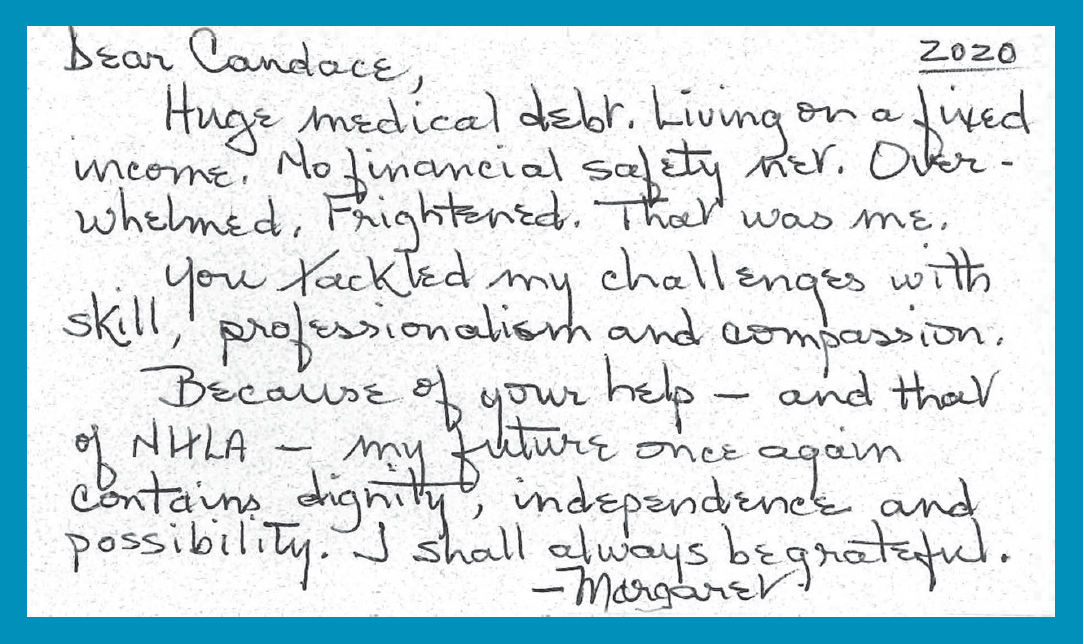 Dear Candace,
2020
Huge medical debt. Living on a fixed
income. No financial safety net. Over-
whelmed. Frightened. That was me.
You tackled my challenges with
skill, professionalism and compassion.
Because of your help – and that
of NHLA – my future once again
contains dignity, independence and
possibility. I shall always be grateful.
– Margaret